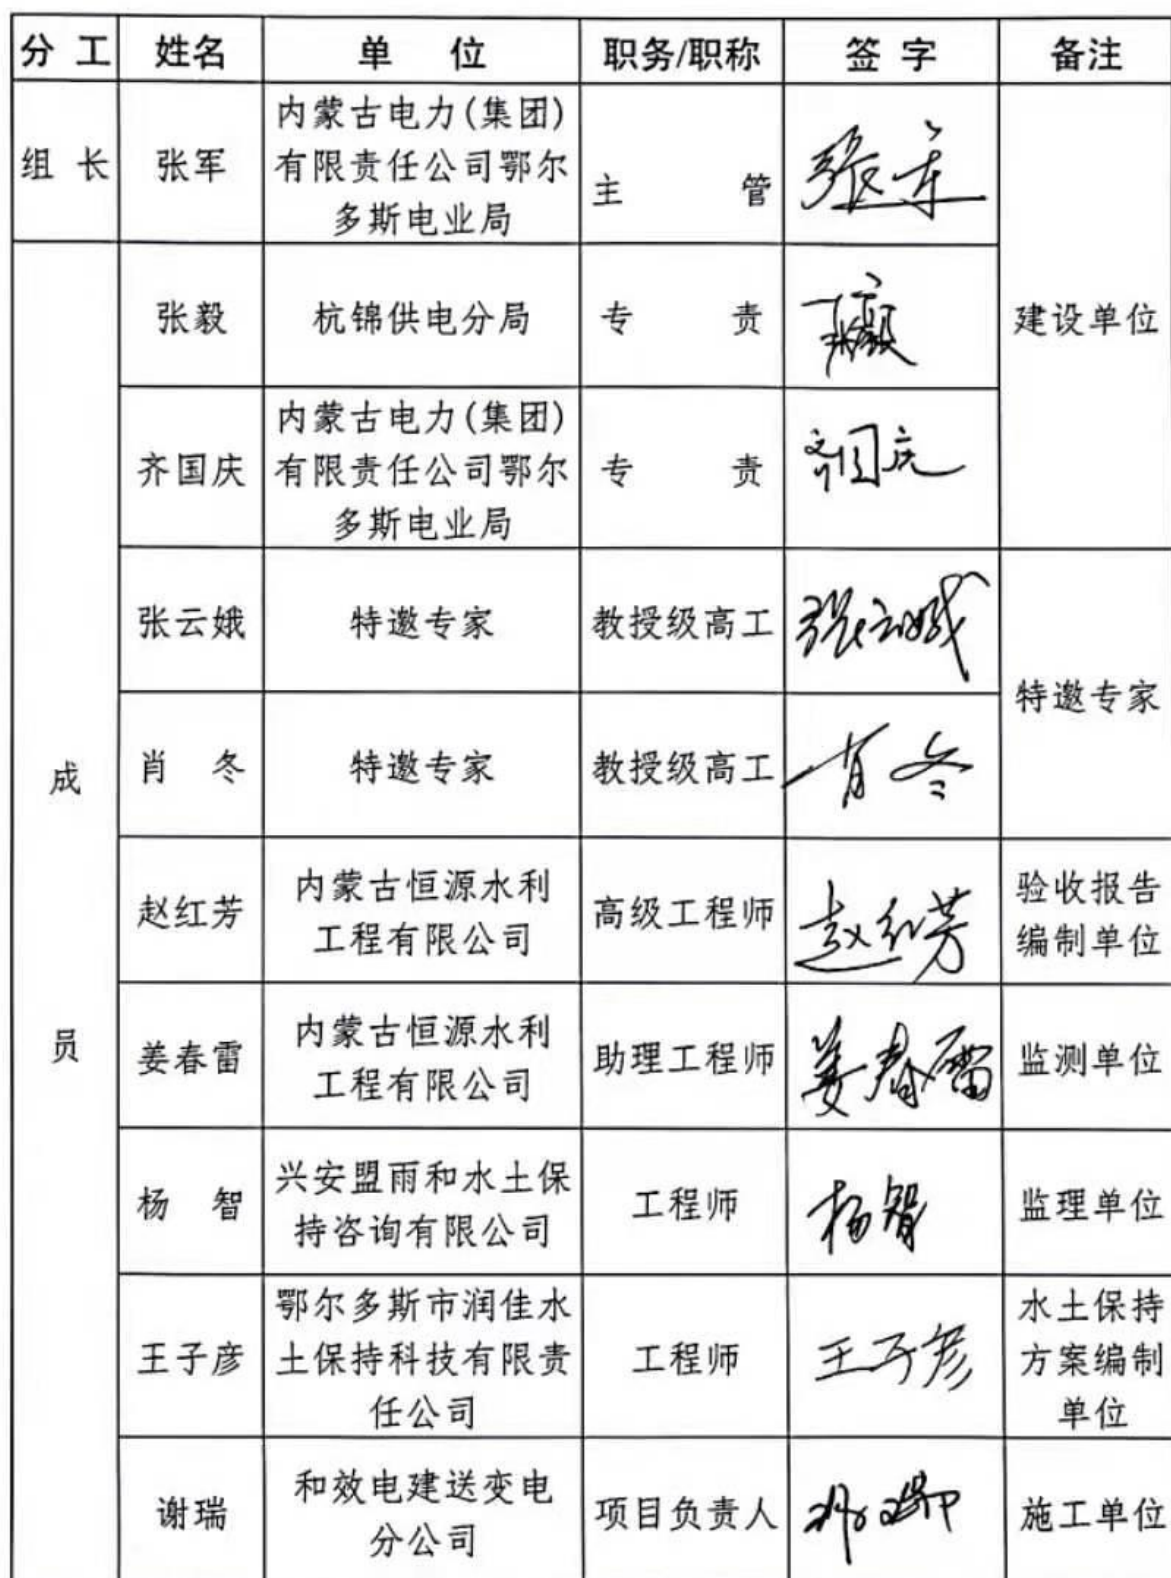 分 工 姓名 单 位 职务/职称 签 字 备注
组 长 张军
内蒙古电力(集团)
有限责任公司鄂尔
多斯电业局
主 管 张军
成
员
建设单位
张毅 杭锦供电分局 专 责 张毅
齐国庆
内蒙古电力(集团)
有限责任公司鄂尔
多斯电业局
专 责 齐国庆
张云娥 特邀专家 教授级高工 张云娥
特邀专家
肖 冬 特邀专家 教授级高工 肖冬
赵红芳
内蒙古恒源水利
工程有限公司
高级工程师 赵红芳
验收报告
编制单位
姜春雷
内蒙古恒源水利
工程有限公司
助理工程师 姜春雷 监测单位
杨 智
兴安盟雨和水土保
持咨询有限公司
工程师 杨智 监理单位
王子彦
鄂尔多斯市润佳水
土保持科技有限责
任公司
工程师 王子彦
水土保持
方案编制
单位
谢瑞
和效电建送变电
分公司
项目负责人 谢瑞 施工单位